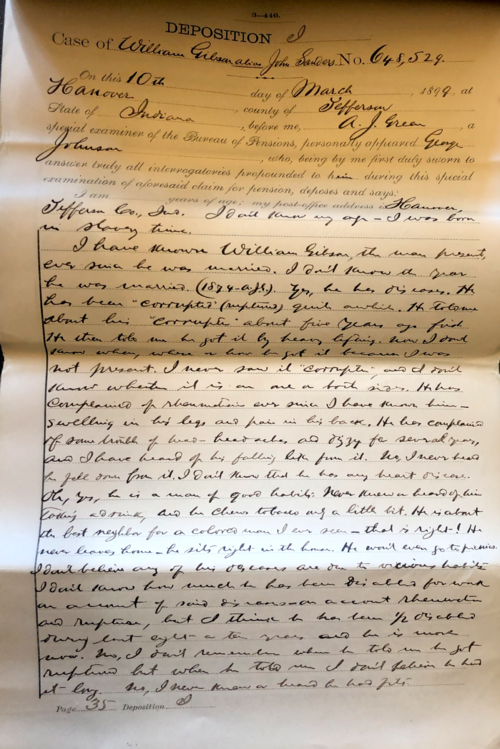 3—446.
DEPOSITION I
Case of William Gibson alias John Sanders, No. 648,529.
On this 10th day of March, 1899, at
Hanover, county of Jefferson
State of Indiana, before me, A. J. Green, a
special examiner of the Bureau of Pensions, personally appeared George
Johnson, who, being by me first duly sworn to
answer truly all interrogatories propounded to him during this special
examination of aforesaid claim for pension, deposes and says:
I am years of age; my post-office address is Hanover,
Jefferson Co., Ind. I don't know my age – I was born
in slavery time.
I have known William Gibson, the man present,
ever since he was married. I don't know the year
he was married. (1874 ). Yes, he has diseases. He
has been "corrupted" (ruptured) quite awhile. He told me
about his "corrupte" about five years ago first.
He then told me he got it by heavy lifting. Now I don't
know when, where or how he got it because I was
not present. I never saw it "corrupte" and I don't
know whether it is on one or both sides. He has
complained of rheumatism ever since I have known him –
swelling in his legs and pain in his back. He has complained
of some trouble of head – headaches and dizzy for several years,
and I have heard of his falling like from it. No, I never heard
he fell down from it. I don't know that he has any heart disease.
Yes, he is a man of good habits. Never knew or heard of him
taking a drink, and he chews tobacco only a little bit. He is about
the best neighbor for a colored man I ever seen – that is right! He
never leaves home – he sits right in the house. He won't even go to
I don't believe any of his diseases are due to vicious habits
I don't know how much he has been disabled for work
on account of said diseases on account rheumatism
and rupture, but I think he has been 1/2 disabled
during last eight or ten years and he is more
now. No, I don't remember when he told me he got
ruptured but when he told me I don't believe he had
it long. No, I never knew or heard he had fits
Page 35 Deposition I